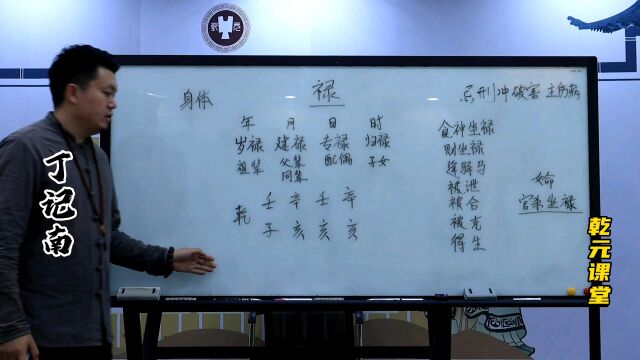 身体
禄
忌刑冲破害 主伤病
年 月 日 时
岁禄 建禄 专禄 归禄
祖辈 父辈 配偶 子女
同辈
乾 壬 辛 壬 辛
子 亥 亥 亥
食神坐禄
财坐禄
逢驿马
被泄
被合
被克
得生
女命
官杀坐禄
丁记南
乾元课堂